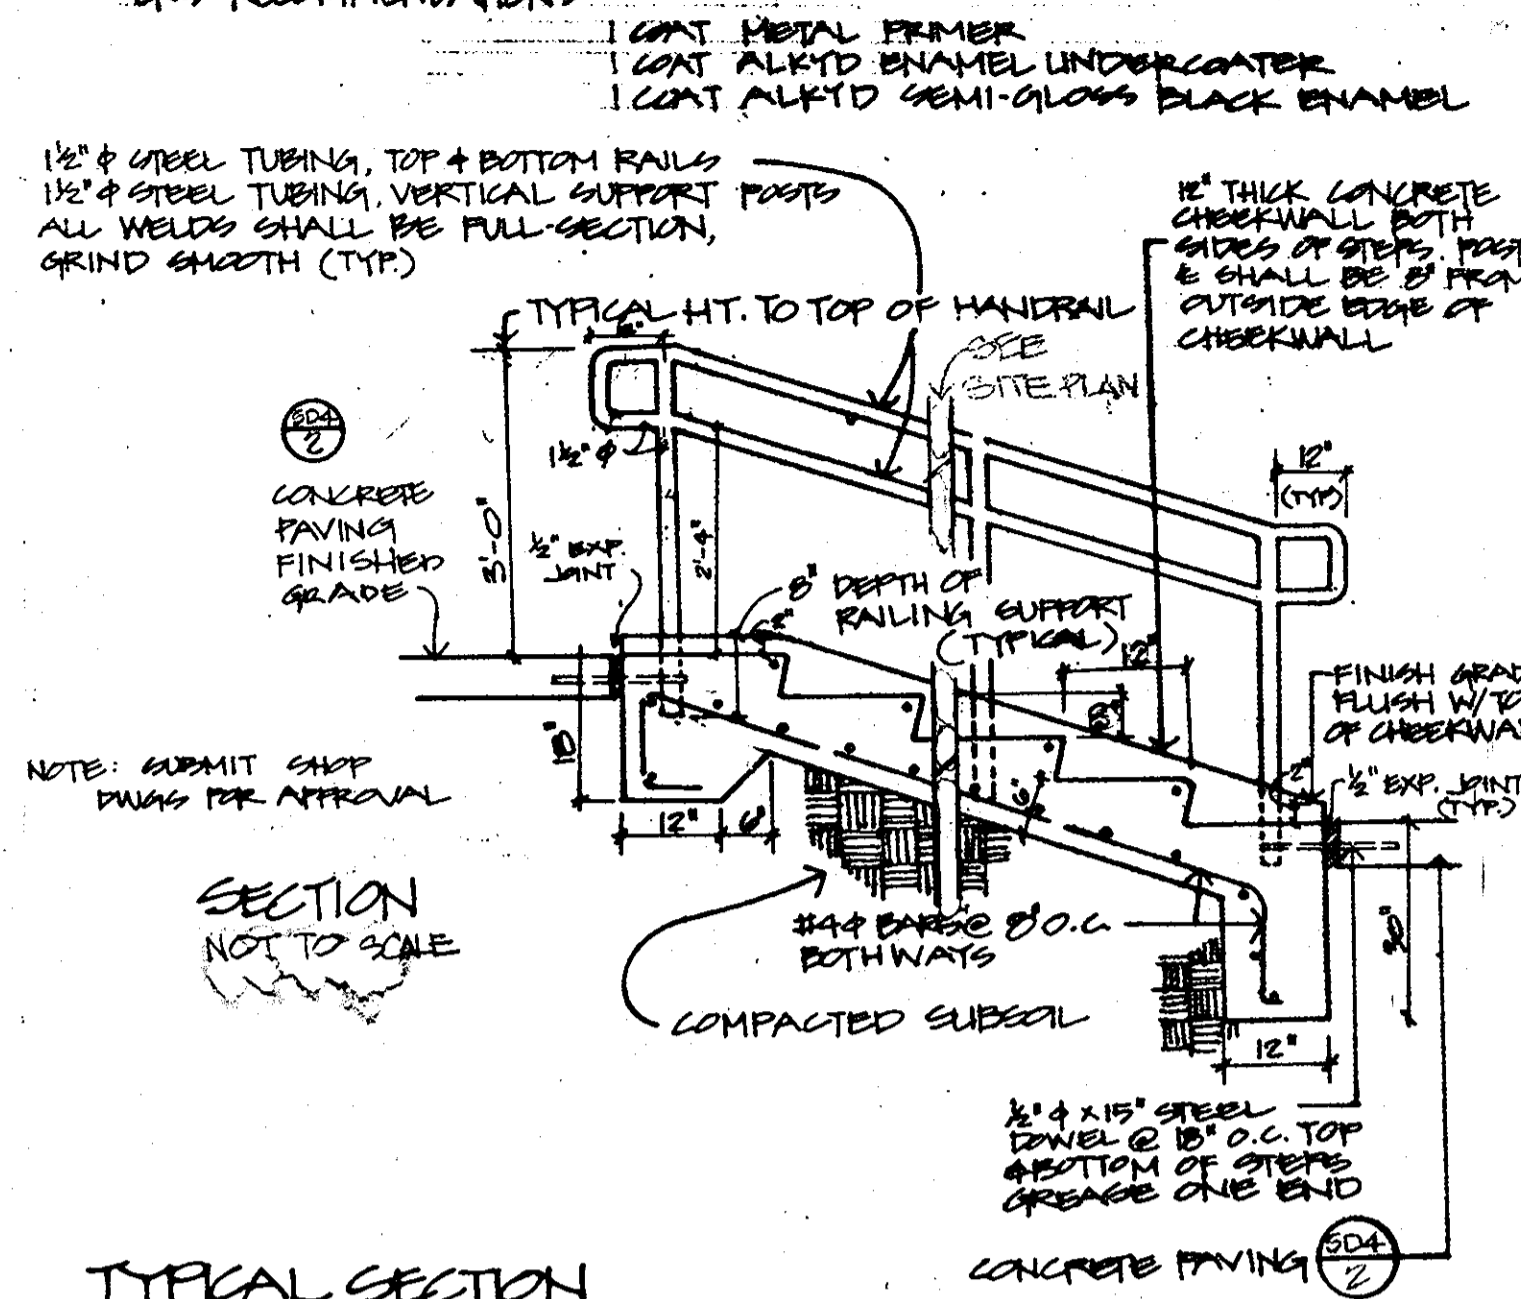 RECOMMENDATIONS
1 COAT METAL PRIMER
1 COAT ALKYD ENAMEL UNDERCOATER
1 COAT ALKYD SEMI-GLOSS BLACK ENAMEL
1½" φ STEEL TUBING, TOP & BOTTOM RAILS
1½" φ STEEL TUBING, VERTICAL SUPPORT POSTS
ALL WELDS SHALL BE FULL-SECTION,
GRIND SMOOTH (TYP.)
12" THICK CONCRETE
CHEEKWALL BOTH
SIDES OF STEPS. POST
℄ SHALL BE 8" FROM
OUTSIDE EDGE OF
CHEEKWALL
TYPICAL HT. TO TOP OF HANDRAIL
SEE
SITE PLAN
SD4
2
1½" φ
12"
(TYP)
CONCRETE
PAVING
FINISHED
GRADE
3'-0"
2'-4"
½" EXP.
JOINT
8" DEPTH OF
RAILING SUPPORT
(TYPICAL)
2"
12"
FINISH GRAD
FLUSH W/ TO
OF CHEEKWA
18"
6"
2"
½" EXP. JOINT
(TYP.)
NOTE: SUBMIT SHOP
DWGS FOR APPROVAL
12"
6"
SECTION
NOT TO SCALE
#4 φ BARS @ 8" O.C.
BOTH WAYS
30"
COMPACTED SUBSOIL
12"
½" φ x 15" STEEL
DOWEL @ 18" O.C. TOP
& BOTTOM OF STEPS
GREASE ONE END
CONCRETE PAVING
SD4
2
TYPICAL SECTION